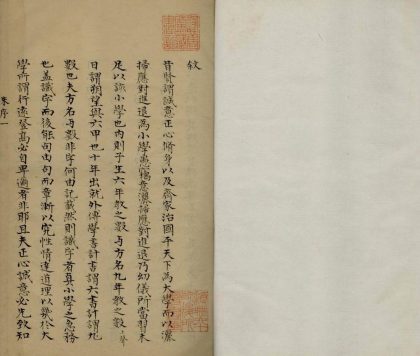 敘
昔賢謂誠意正心脩身以及齊家治國平天下為大學而以灑
掃應對進退為小學愚竊意灑掃應對進退乃幼儀所當習未
足以該小學也內則子生六年教之數與方名九年教之數
日謂朔望與六甲也十年出就外傅學書計書謂六書計謂九
數也夫方名與數非字何由記載然則識字者真小學之急務
也蓋識字而後能句由句而章漸以究性情達道理以幾於大
學所謂行遠登高必自卑邇者非耶且夫正心誠意必先致知
朱序一